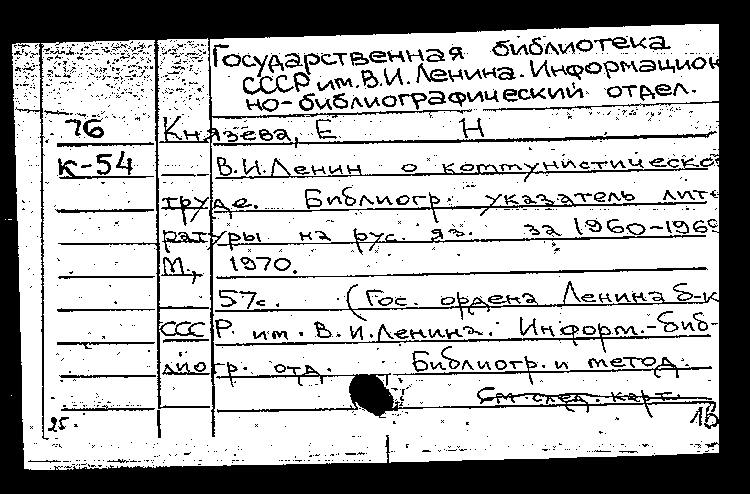 Государственная библиотека
СССР им. В.И. Ленина. Информацион
но-библиографический отдел.
76 Князева, Е Н
К-54 В.И. Ленин о коммунистическо
труде. Библиогр. указатель лите
ратуры на рус. яз. за 1960-1969
М., 1970.
57с. (Гос. ордена Ленина б-к
СССР им. В.И. Ленина. Информ.-биб-
лиогр. отд. Библиогр. и метод.
См след. карт.
25. 1Б